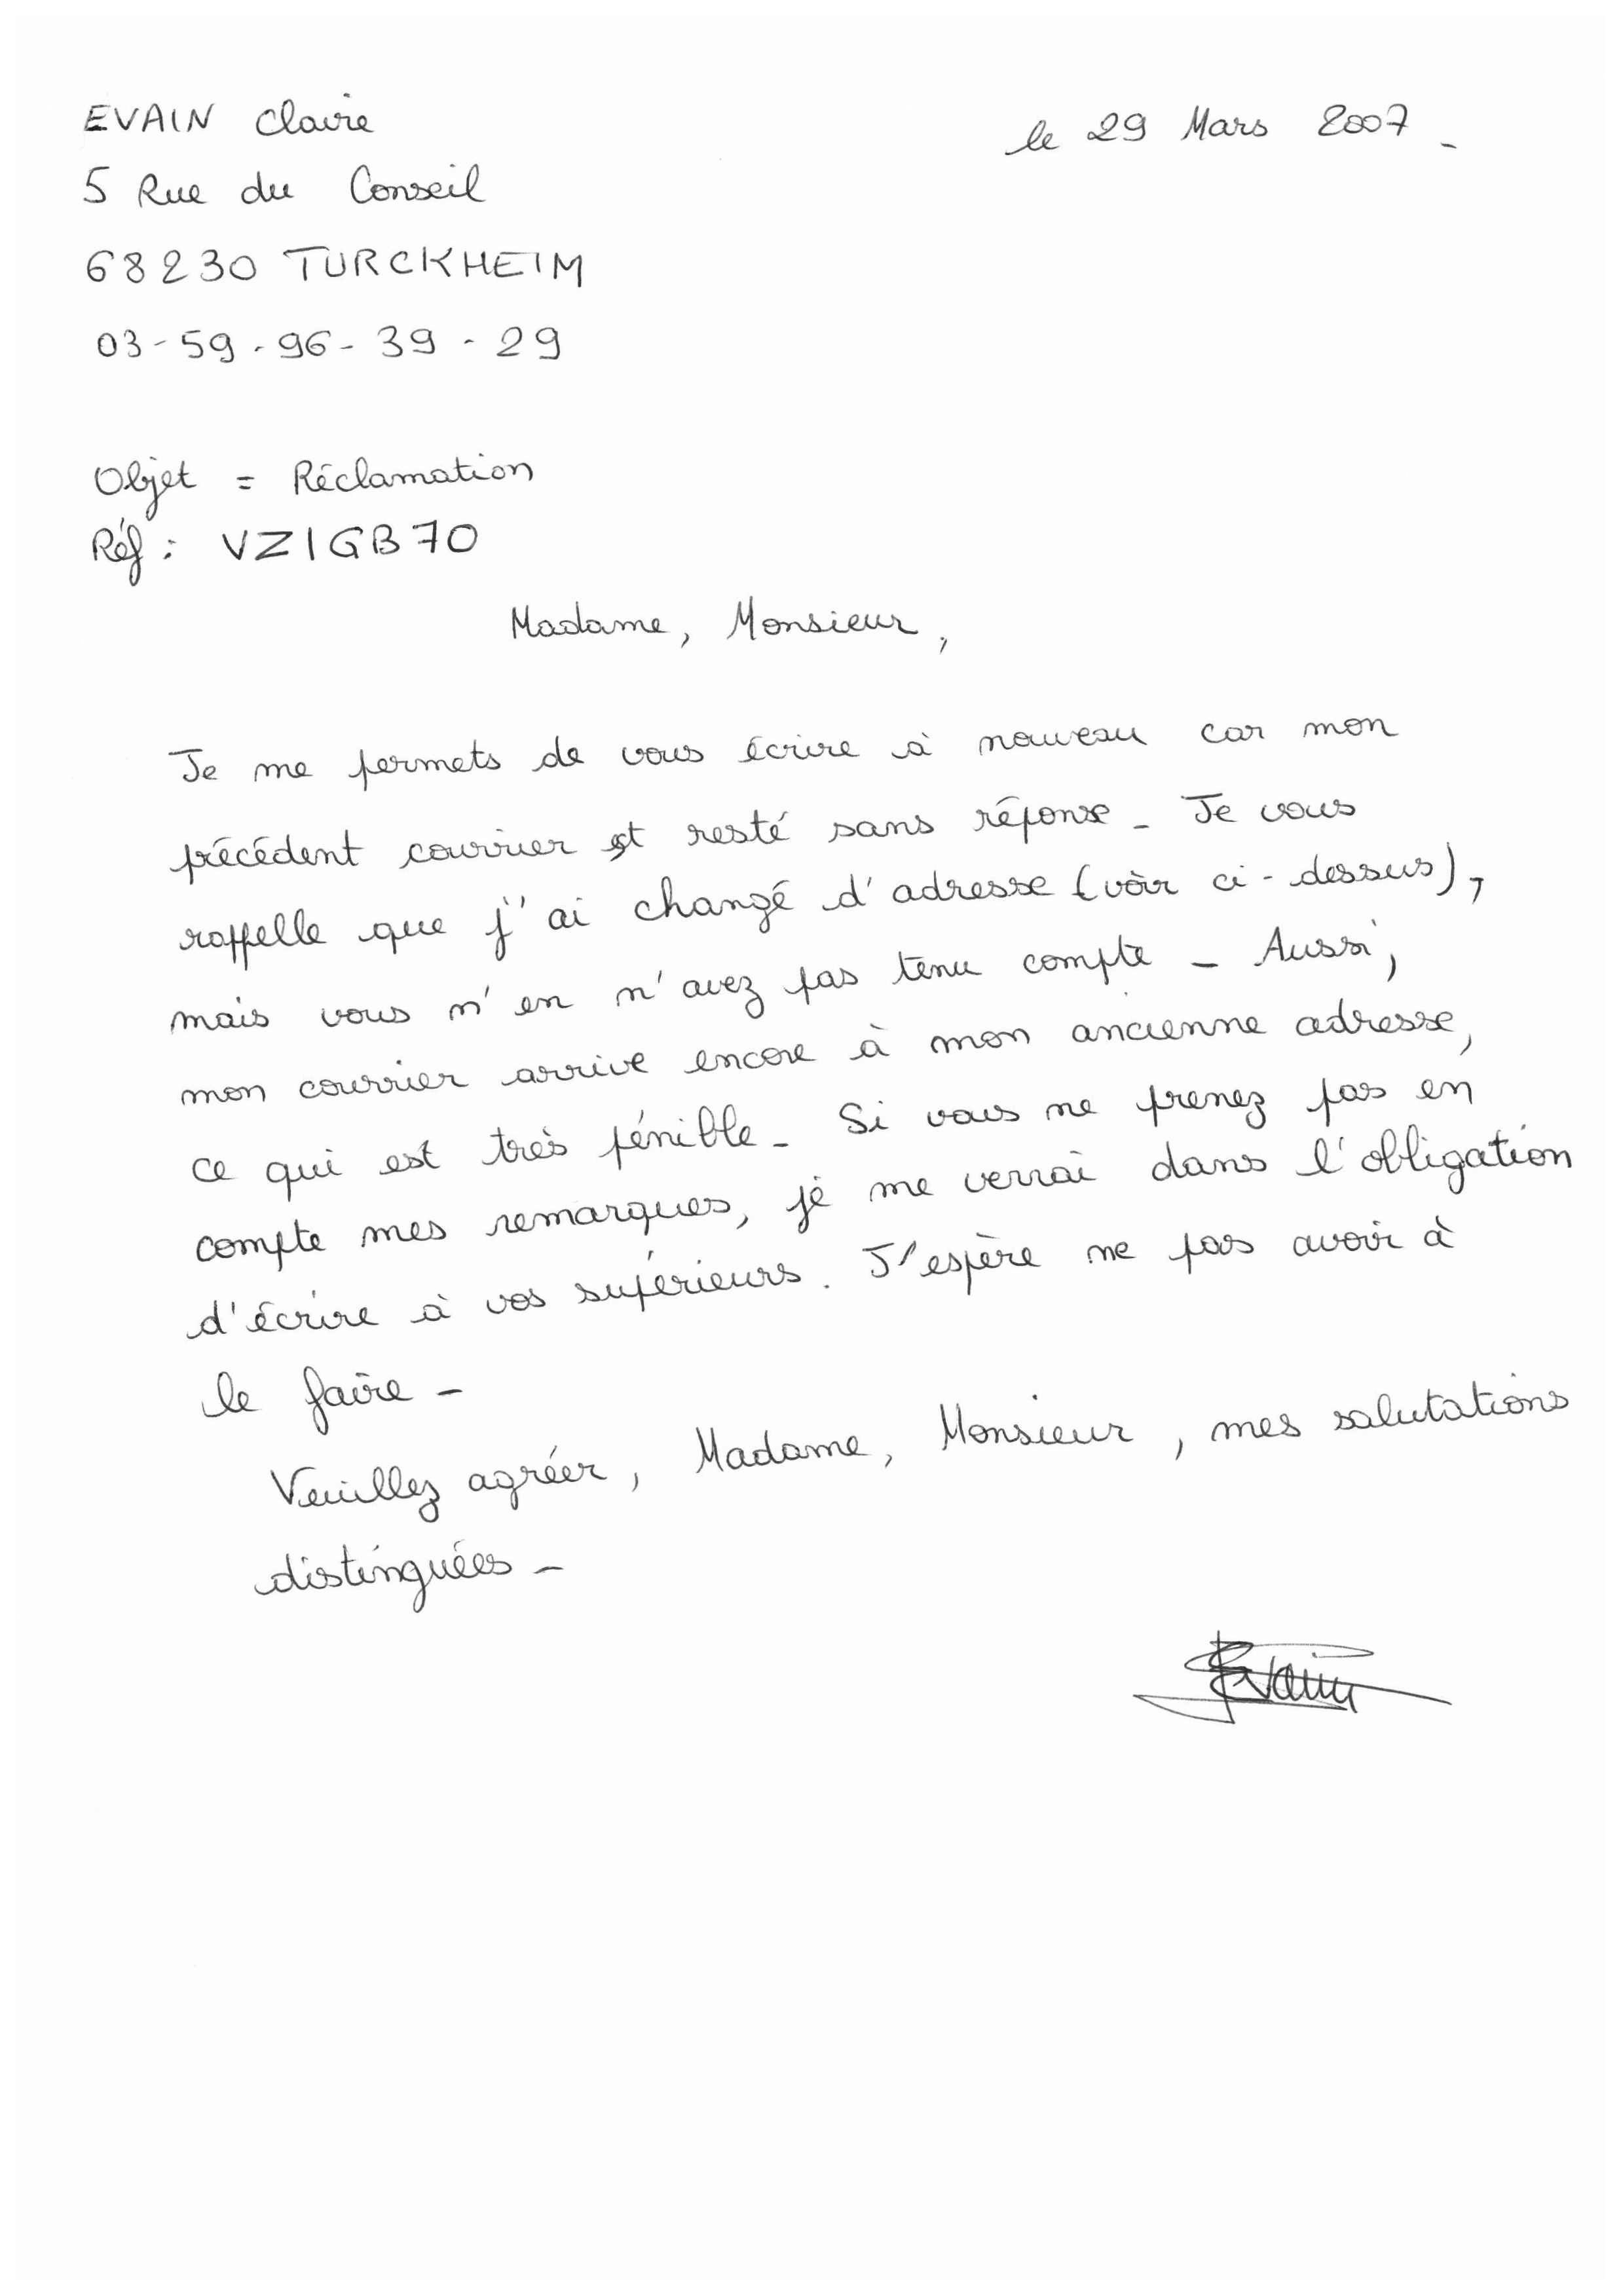 EVAIN Claire
le 29 Mars 2007 -
5 Rue du Conseil
68230 TURCKHEIM
03-59-96-39-29
Objet = Réclamation
Réf : VZIGB70
Madame, Monsieur,
Je me permets de vous écrire à nouveau car mon
précédent courrier est resté sans réponse - Je vous
rappelle que j'ai changé d'adresse (voir ci-dessus),
mais vous n'en n'avez pas tenu compte - Aussi,
mon courrier arrive encore à mon ancienne adresse,
ce qui est très pénible - Si vous ne prenez pas en
compte mes remarques, je me verrai dans l'obligation
d'écrire à vos supérieurs. J'espère ne pas avoir à
le faire -
Veuillez agréer, Madame, Monsieur, mes salutations
distinguées -
Evain